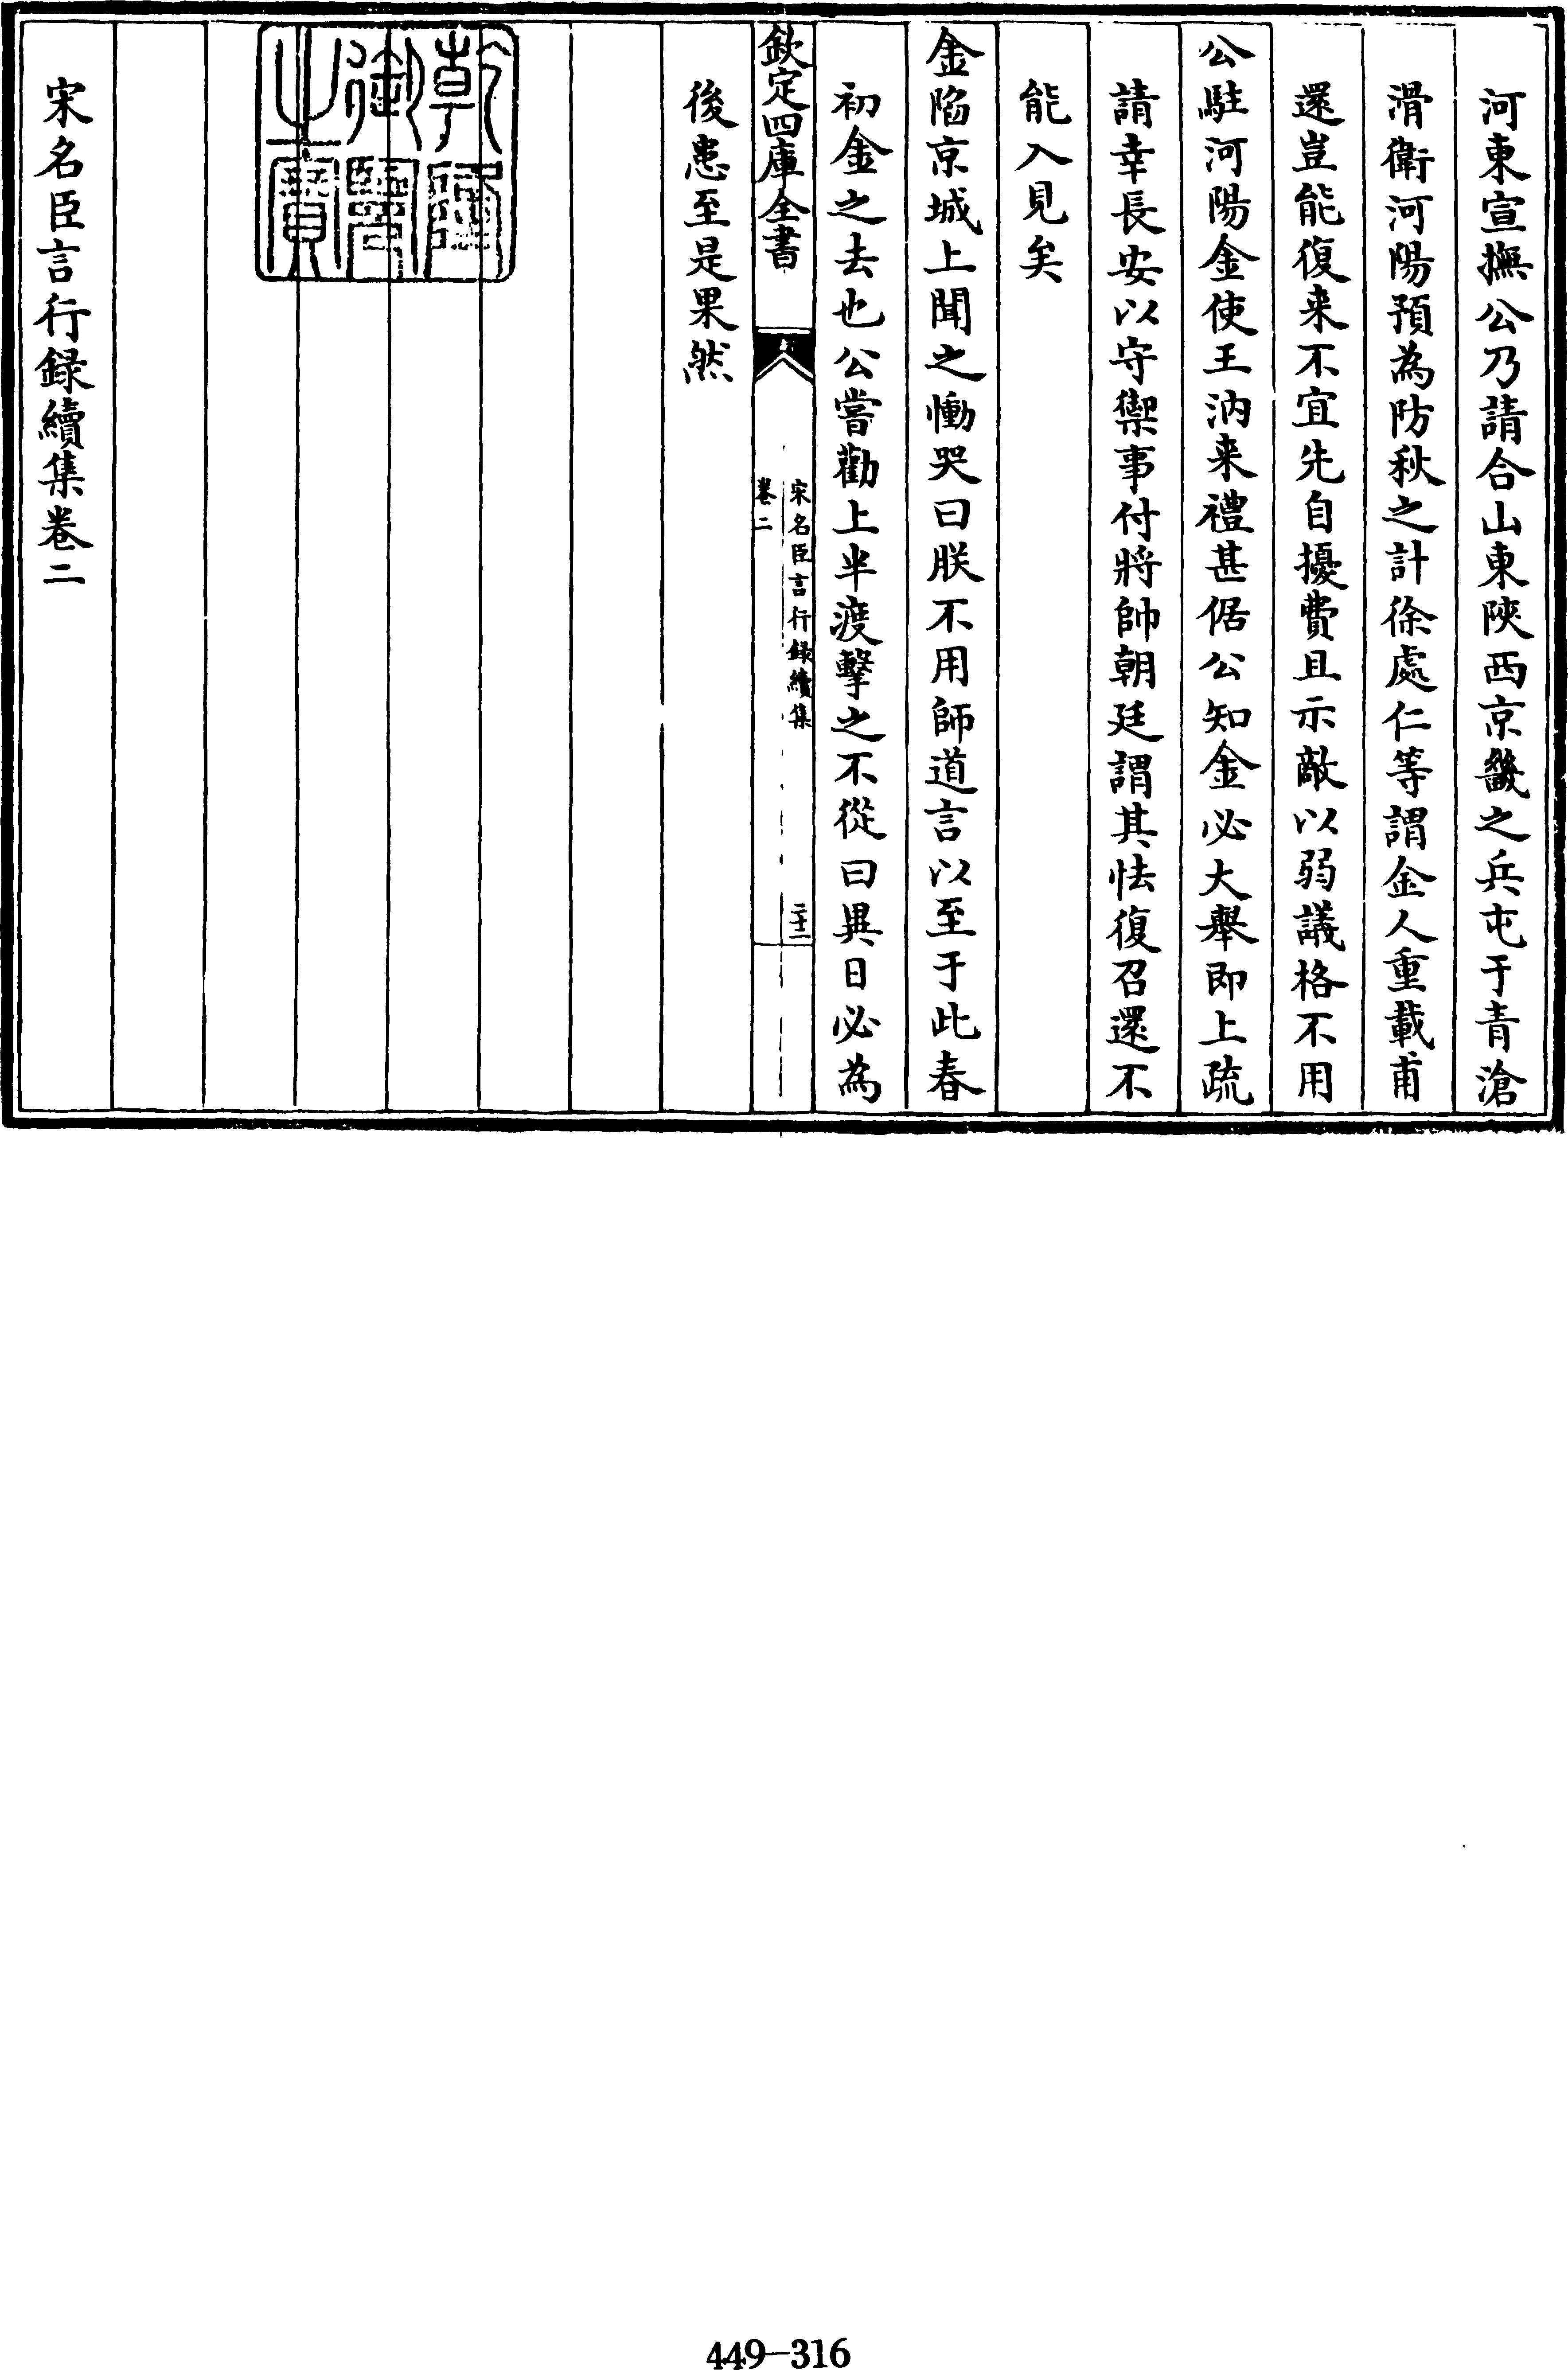 河東宣撫公乃請合山東陜西京畿之兵屯于青滄
滑衛河陽預為防秋之計徐處仁等謂金人重載甫
還豈能復来不宜先自擾費且示敵以弱議格不用
公駐河陽金使王汭来禮甚倨公知金必大舉即上疏
請幸長安以守禦事付將帥朝廷謂其怯復召還不
能入見矣
金陷京城上聞之慟哭曰朕不用師道言以至于此春
初金之去也公嘗勸上半渡擊之不從曰異日必為
欽定四庫全書
宋名臣言行録續集
卷二
二十二
後患至是果然
乾隆御覽之寶
宋名臣言行録續集卷二
449-316